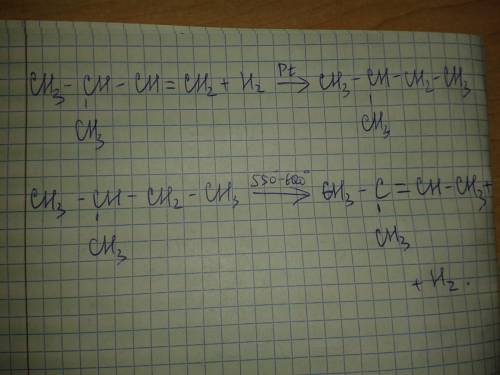 CH₃ - CH - CH = CH₂ + H₂ Pt → CH₃ - CH - CH₂ - CH₃
CH₃ CH₃
CH₃ - CH - CH₂ - CH₃ 550-600° → CH₃ - C = CH - CH₃ +
CH₃ CH₃
+ H₂.